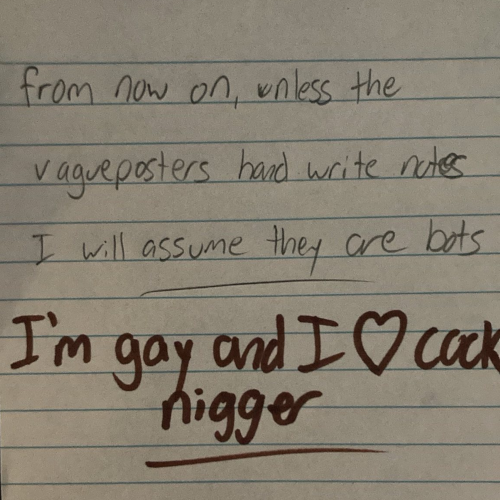 from now on, unless the
vagueposters hand write notes
I will assume they are bots
I'm gay and I ♡ cock
nigger